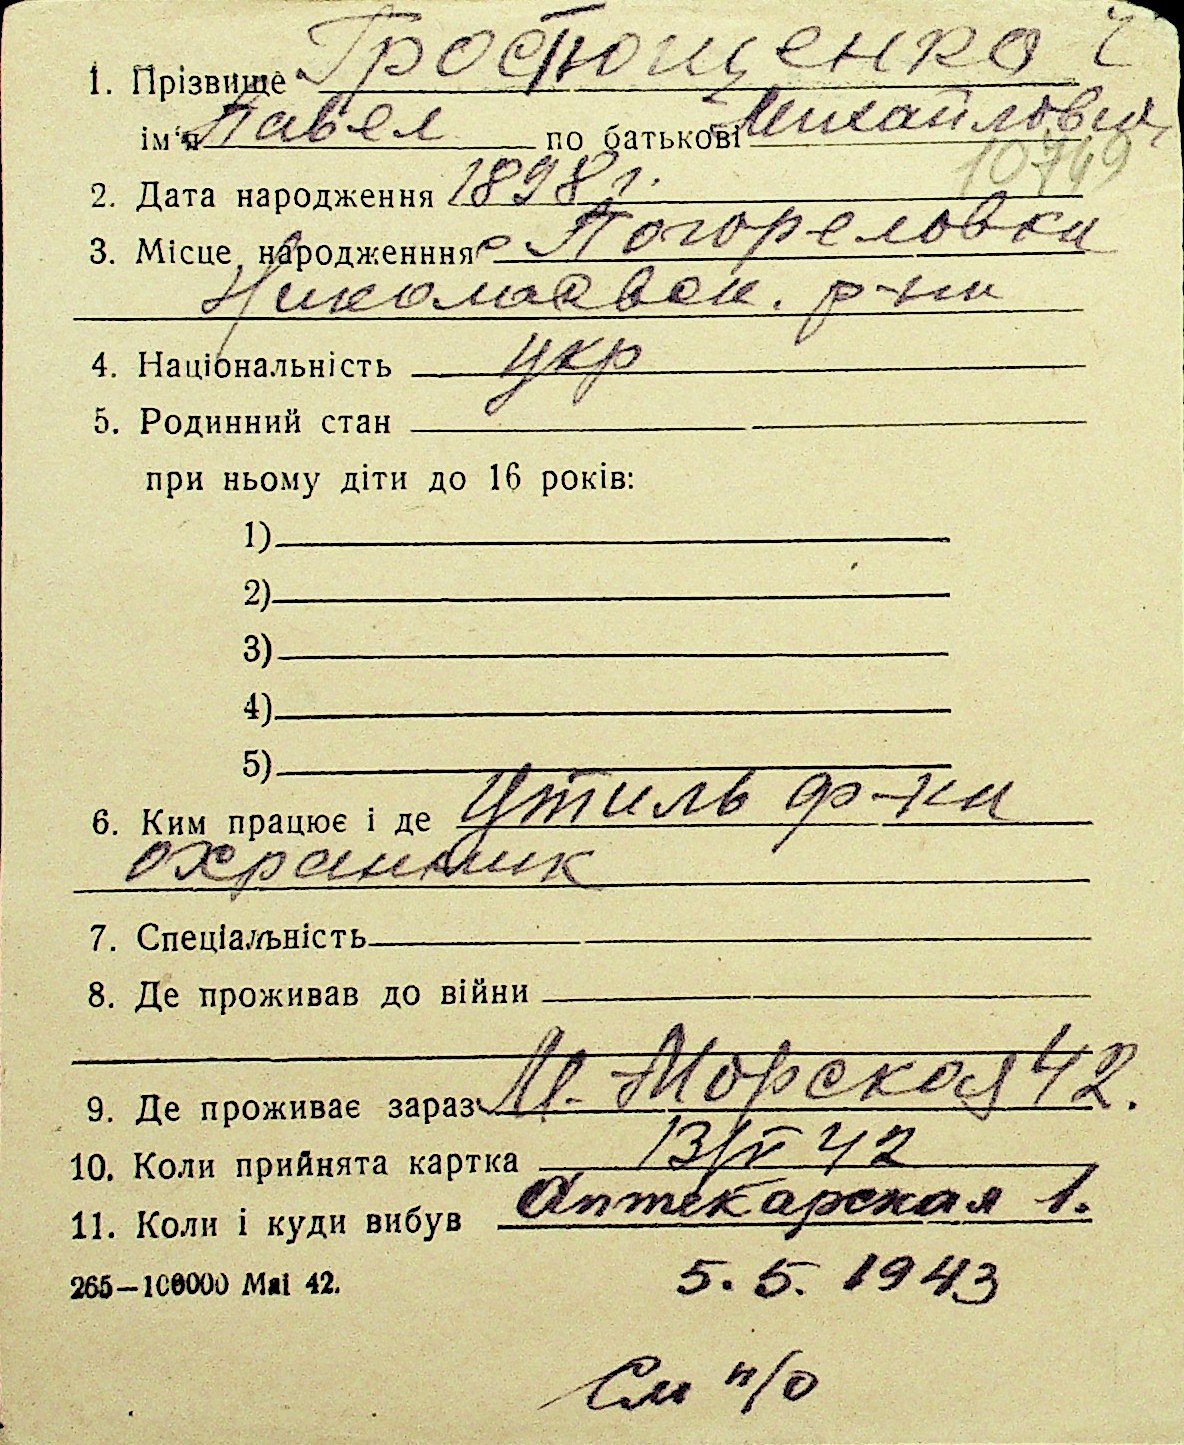 1. Прізвище Простющенко
ім‘я Павел по батькові Михайлович
10749
2. Дата народження 1898 г.
3. Місце народженння с Погореловки
Николаевск. р-на
4. Національність укр
5. Родинний стан
при ньому діти до 16 років:
1)
2)
3)
4)
5)
6. Ким працює і де Утиль ф-ки
охранник
7. Спеціальність
8. Де проживав до війни
9. Де проживає зараз М. Морская 42.
10. Коли прийнята картка 13/V 42
11. Коли і куди вибув Аптекарская 1.
265—100000 Маі 42. 5. 5. 1943
См н/о